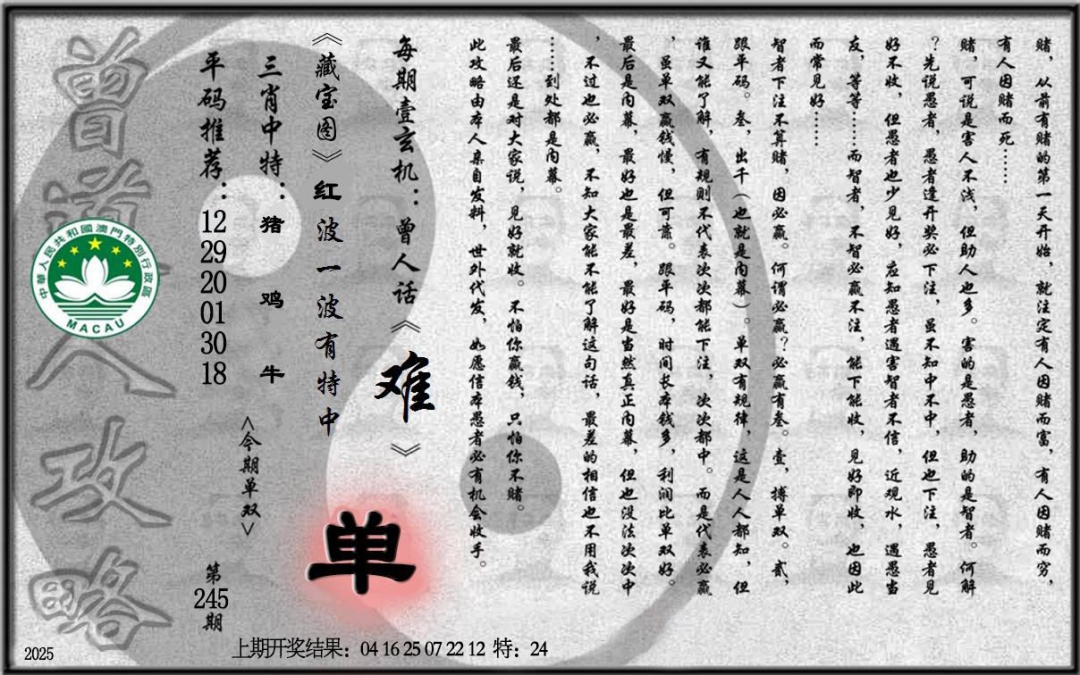 赌，从前有赌的第一天开始，就注定有人因赌而富，有人因赌而穷，
有人因赌而死……
赌，可说是害人不浅，但助人也多。害的是愚者，助的是智者。何解
？先说愚者，愚者逢开奖必下注，虽不知中不中，但也下注，愚者见
好不收，但愚者也少见好，应知愚者遇害智者不信，近观水，遇愚当
友，等等……而智者，不智必赢不注，能下能收，见好即收，也因此
而常见好……
智者下注不算赌，因必赢。何谓必赢？必赢有叁。壹，搏单双。贰，
跟单码。叁，出千（也就是内幕）。单双有规律，这是人人都知，但
谁又能了解，有规则不代表次次都能下注，次次都中。而是代表必赢
，虽单双赢钱慢，但可靠。跟单码，时间长本钱多，利润比单双好。
最后是内幕，最好也是最差，最好是当然真正内幕，但也没法次次中
，不过也必赢，不知大家能不能了解这句话，最差的相信也不用我说
……到处都是内幕。
最后还是对大家说，见好就收。不怕你赢钱，只怕你不赌。
此攻略由本人亲自发料，世外代发，如愿信本愚者必有机会收手。
每期壹玄机：曾人话《难》
《藏宝图》红波一波有特中
单
三肖中特：猪 鸡 牛
<今期单双>
平码推荐：12 29 20 01 30 18
第245期
曾道人攻略
中華人民共和國澳門特別行政區
MACAU
2025
上期开奖结果：04 16 25 07 22 12 特：24